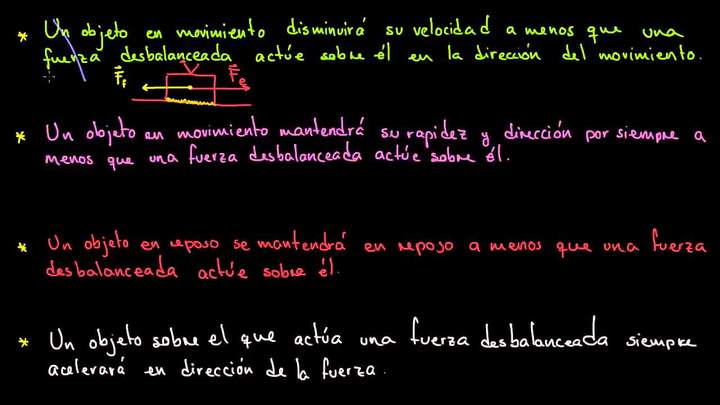 * Un objeto en movimiento disminuirá su velocidad a menos que una
fuerza desbalanceada actúe sobre él en la dirección del movimiento.
F⃗f V F⃗e
* Un objeto en movimiento mantendrá su rapidez y dirección por siempre a
menos que una fuerza desbalanceada actúe sobre él.
* Un objeto en reposo se mantendrá en reposo a menos que una fuerza
desbalanceada actúe sobre él.
* Un objeto sobre el que actúa una fuerza desbalanceada siempre
acelerará en dirección de la fuerza.